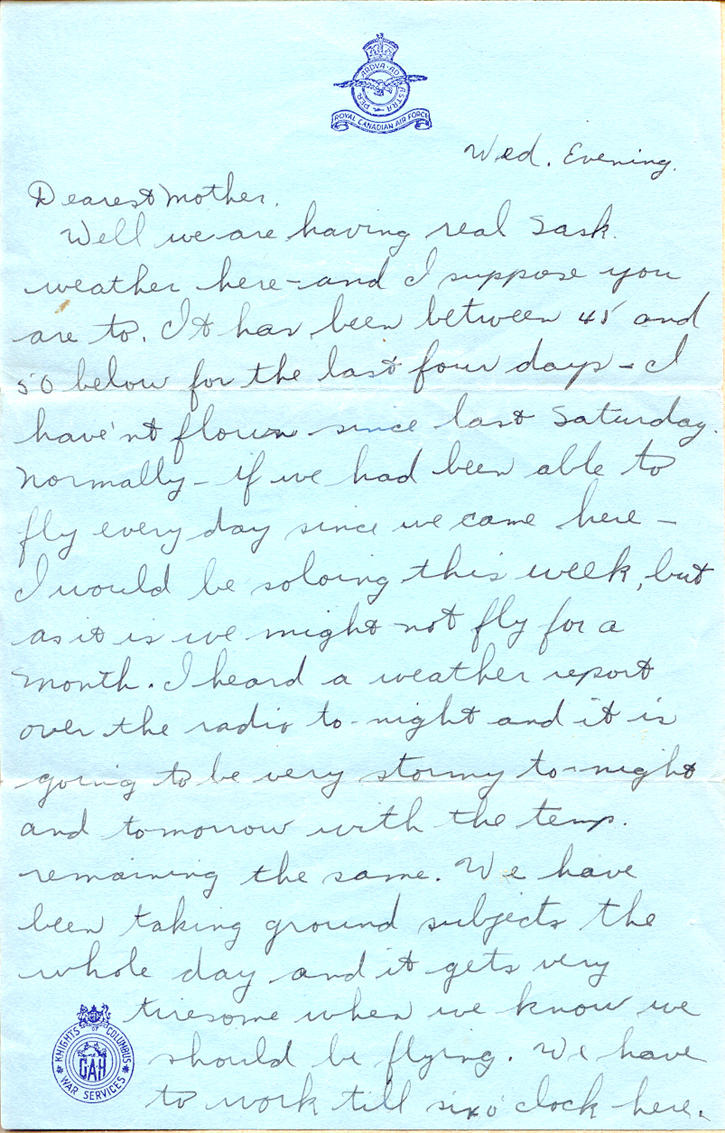 PER ARDVA AD ASTRA
ROYAL CANADIAN AIR FORCE
Wed. Evening.
Dearest Mother.
Well we are having real Sask.
weather here - and I suppose you
are to. It has been between 45 and
50 below for the last four days - I
have'nt flown since last Saturday.
Normally - if we had been able to
fly every day since we came here -
I would be soloing this week, but
as it is we might not fly for a
month. I heard a weather report
over the radio to-night and it is
going to be very stormy to-night
and tomorrow with the temp.
remaining the same. We have
been taking ground subjects the
whole day and it gets very
tiresome when we know we
should be flying. We have
to work till six o'clock here.
KNIGHTS OF COLUMBUS
CAH
WAR SERVICES